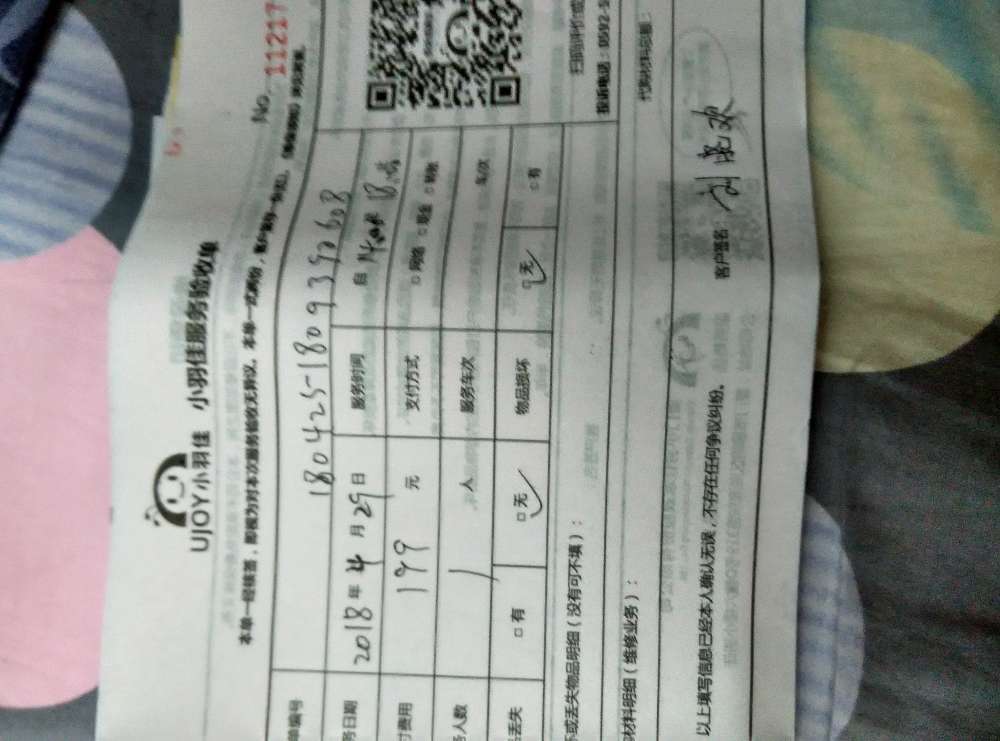 No. 11217
UJOY小羽佳 小羽佳服务验收单
本单一经续签，即视为对本次服务验收无异议。本单一式两份，客户留存一份
单编号 180425-1809392608
务日期 2018年4月29日 服务时间 自 14:00时
付费用 199 元 支付方式 □网络 □现金 □转账
务人数 1 人 服务车次 车次
品丢失 □有 □无 物品损坏 □无 □有
坏或丢失物品明细（没有可不填）：
材料明细（维修业务）： 代购材料总额：
投诉电话：0592-5
以上填写信息已经本人确认无误，不存在任何争议纠纷。 客户签名：